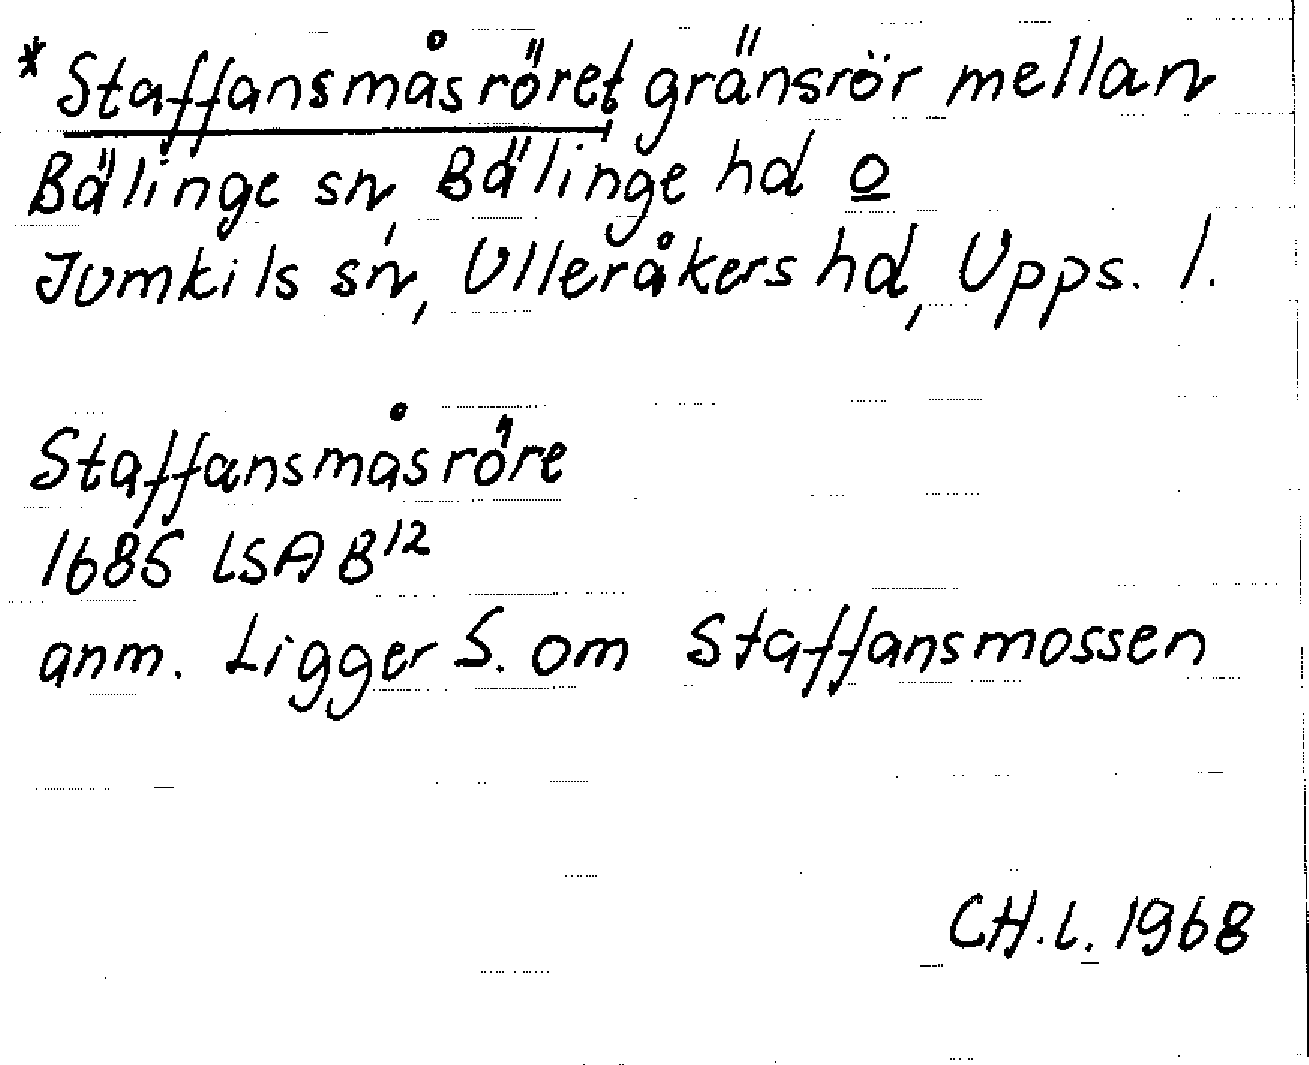 *Staffansmåsröret gränsrör mellan
Bälinge sn, Bälinge hd o
Jumkils sn, Ulleråkers hd, Upps. l.
Staffansmåsröre
1685 LSA B¹²
anm. Ligger S. om Staffansmossen
CH.L. 1968